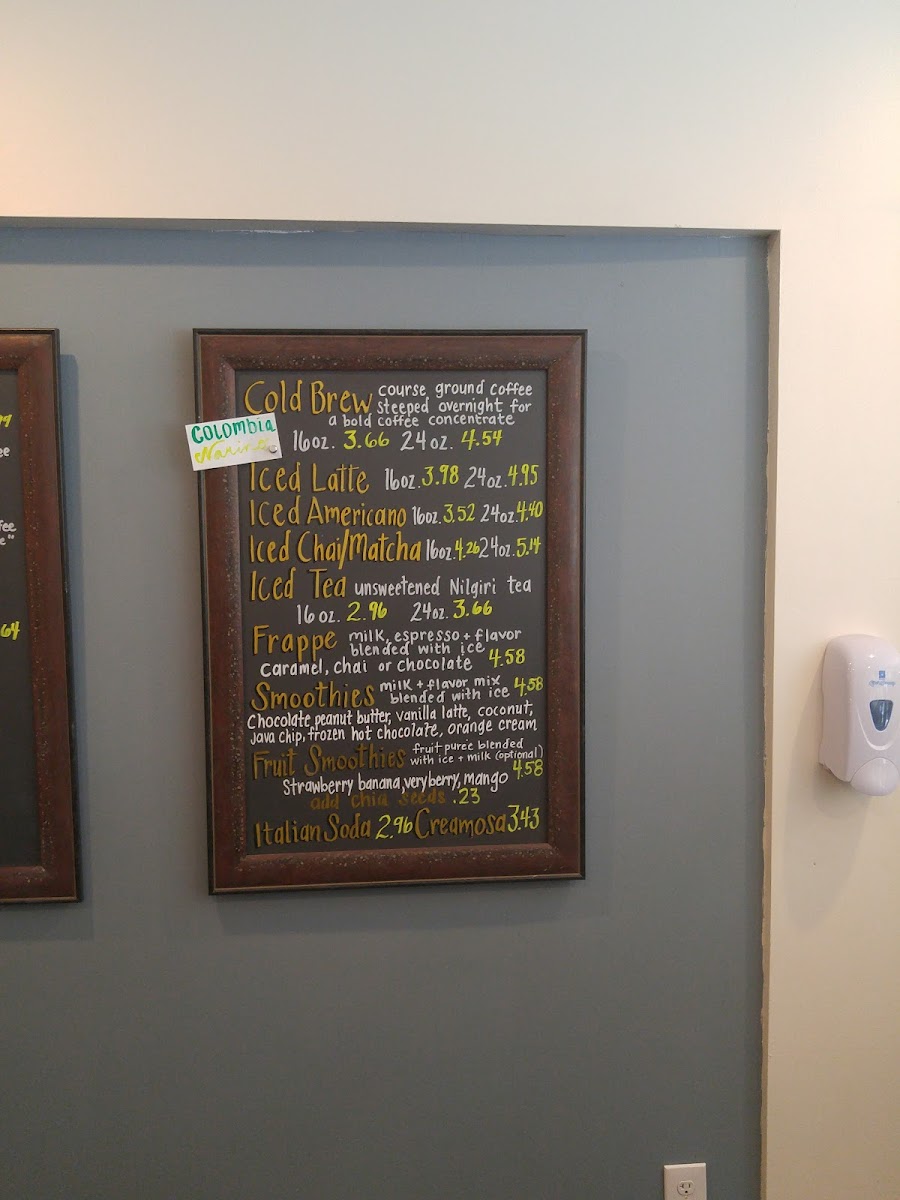 Cold Brew course ground coffee
steeped overnight for
a bold coffee concentrate
COLOMBIA
16oz. 3.66 24oz. 4.54
Iced Latte 16oz. 3.98 24oz. 4.95
Iced Americano 16oz. 3.52 24oz. 4.40
Iced Chai/Matcha 16oz. 4.26 24oz. 5.14
Iced Tea unsweetened Nilgiri tea
16oz. 2.96 24oz. 3.66
Frappe milk, espresso + flavor
blended with ice
caramel, chai or chocolate 4.58
Smoothies milk + flavor mix
blended with ice 4.58
Chocolate, peanut butter, vanilla latte, coconut,
java chip, frozen hot chocolate, orange cream
Fruit Smoothies fruit puree blended
with ice + milk (optional)
4.58
Strawberry banana, veryberry, mango
add chia seeds .23
Italian Soda 2.96 Creamosa 3.43